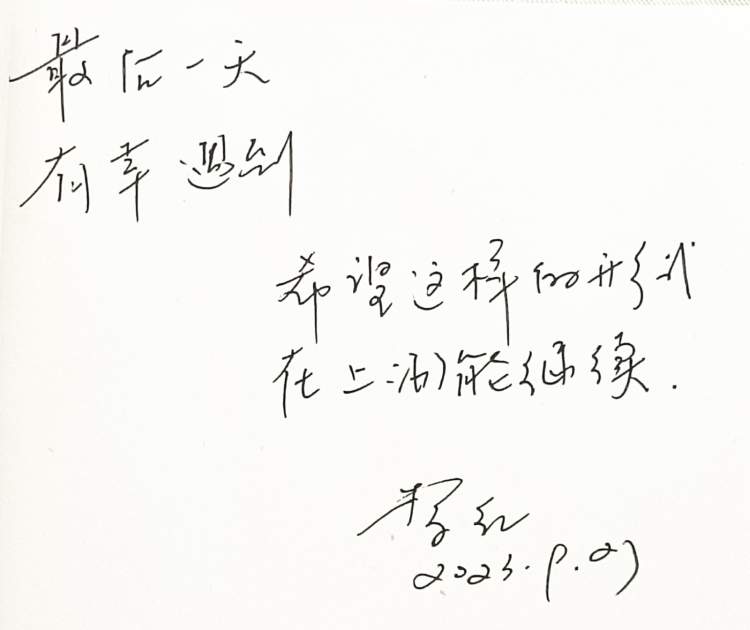 最后一天
有幸遇到
希望这样的形式
在上海能继续.